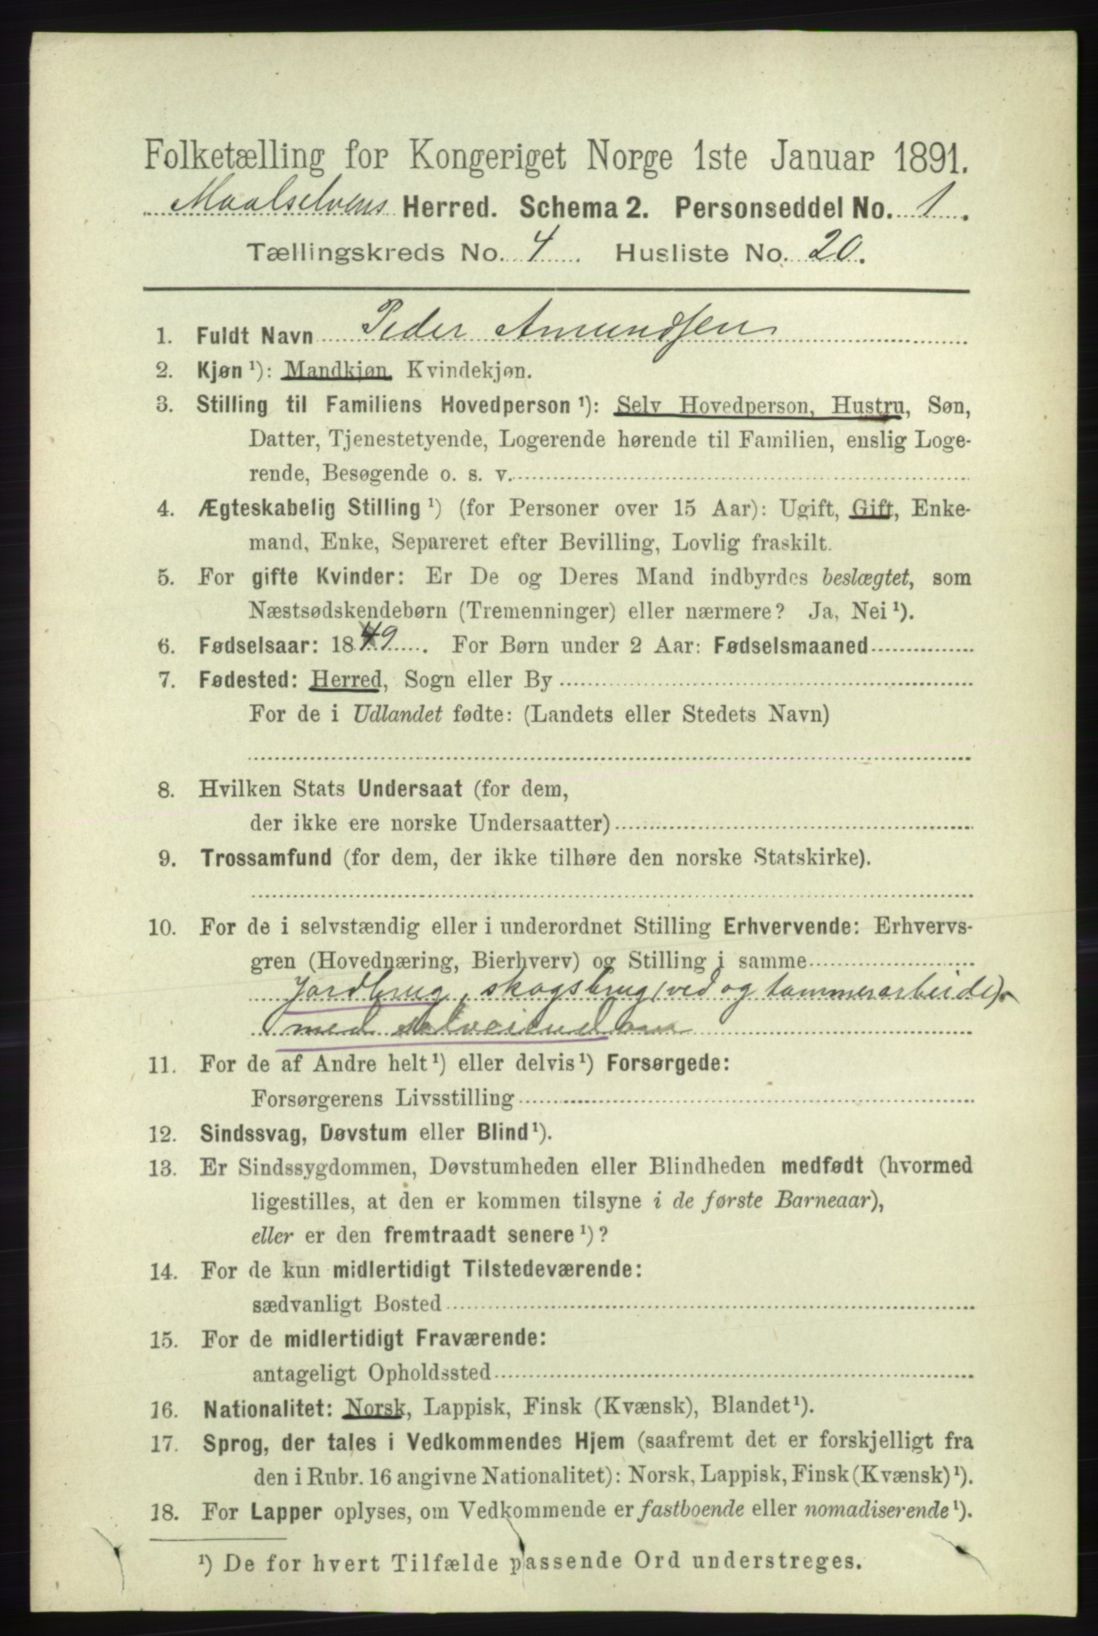 Folketælling for Kongeriget Norge 1ste Januar 1891.
Maalselvens Herred. Schema 2. Personseddel No. 1.
Tællingskreds No. 4. Husliste No. 20.
1. Fuldt Navn Peder Amundsen
2. Kjøn ¹): Mandkjøn, Kvindekjøn.
3. Stilling til Familiens Hovedperson ¹): Selv Hovedperson, Hustru, Søn,
Datter, Tjenestetyende, Logerende hørende til Familien, enslig Loge-
rende, Besøgende o. s. v.
4. Ægteskabelig Stilling ¹) (for Personer over 15 Aar): Ugift, Gift, Enke-
mand, Enke, Separeret efter Bevilling, Lovlig fraskilt.
5. For gifte Kvinder: Er De og Deres Mand indbyrdes beslægtet, som
Næstsødskendebørn (Tremenninger) eller nærmere? Ja, Nei ¹).
6. Fødselsaar: 1849. For Børn under 2 Aar: Fødselsmaaned
7. Fødested: Herred, Sogn eller By
For de i Udlandet fødte: (Landets eller Stedets Navn)
8. Hvilken Stats Undersaat (for dem,
der ikke ere norske Undersaatter)
9. Trossamfund (for dem, der ikke tilhøre den norske Statskirke).
10. For de i selvstændig eller i underordnet Stilling Erhvervende: Erhvervs-
gren (Hovednæring, Bierhverv) og Stilling i samme
Jordbrug, skogsbrug (ved og tømmerarbeide)
med selveiendom
11. For de af Andre helt ¹) eller delvis ¹) Forsørgede:
Forsørgerens Livsstilling
12. Sindssvag, Døvstum eller Blind ¹).
13. Er Sindssygdommen, Døvstumheden eller Blindheden medfødt (hvormed
ligestilles, at den er kommen tilsyne i de første Barneaar),
eller er den fremtraadt senere ¹)?
14. For de kun midlertidigt Tilstedeværende:
sædvanligt Bosted
15. For de midlertidigt Fraværende:
antageligt Opholdssted
16. Nationalitet: Norsk, Lappisk, Finsk (Kvænsk), Blandet ¹).
17. Sprog, der tales i Vedkommendes Hjem (saafremt det er forskjelligt fra
den i Rubr. 16 angivne Nationalitet): Norsk, Lappisk, Finsk (Kvænsk) ¹).
18. For Lapper oplyses, om Vedkommende er fastboende eller nomadiserende ¹).
¹) De for hvert Tilfælde passende Ord understreges.